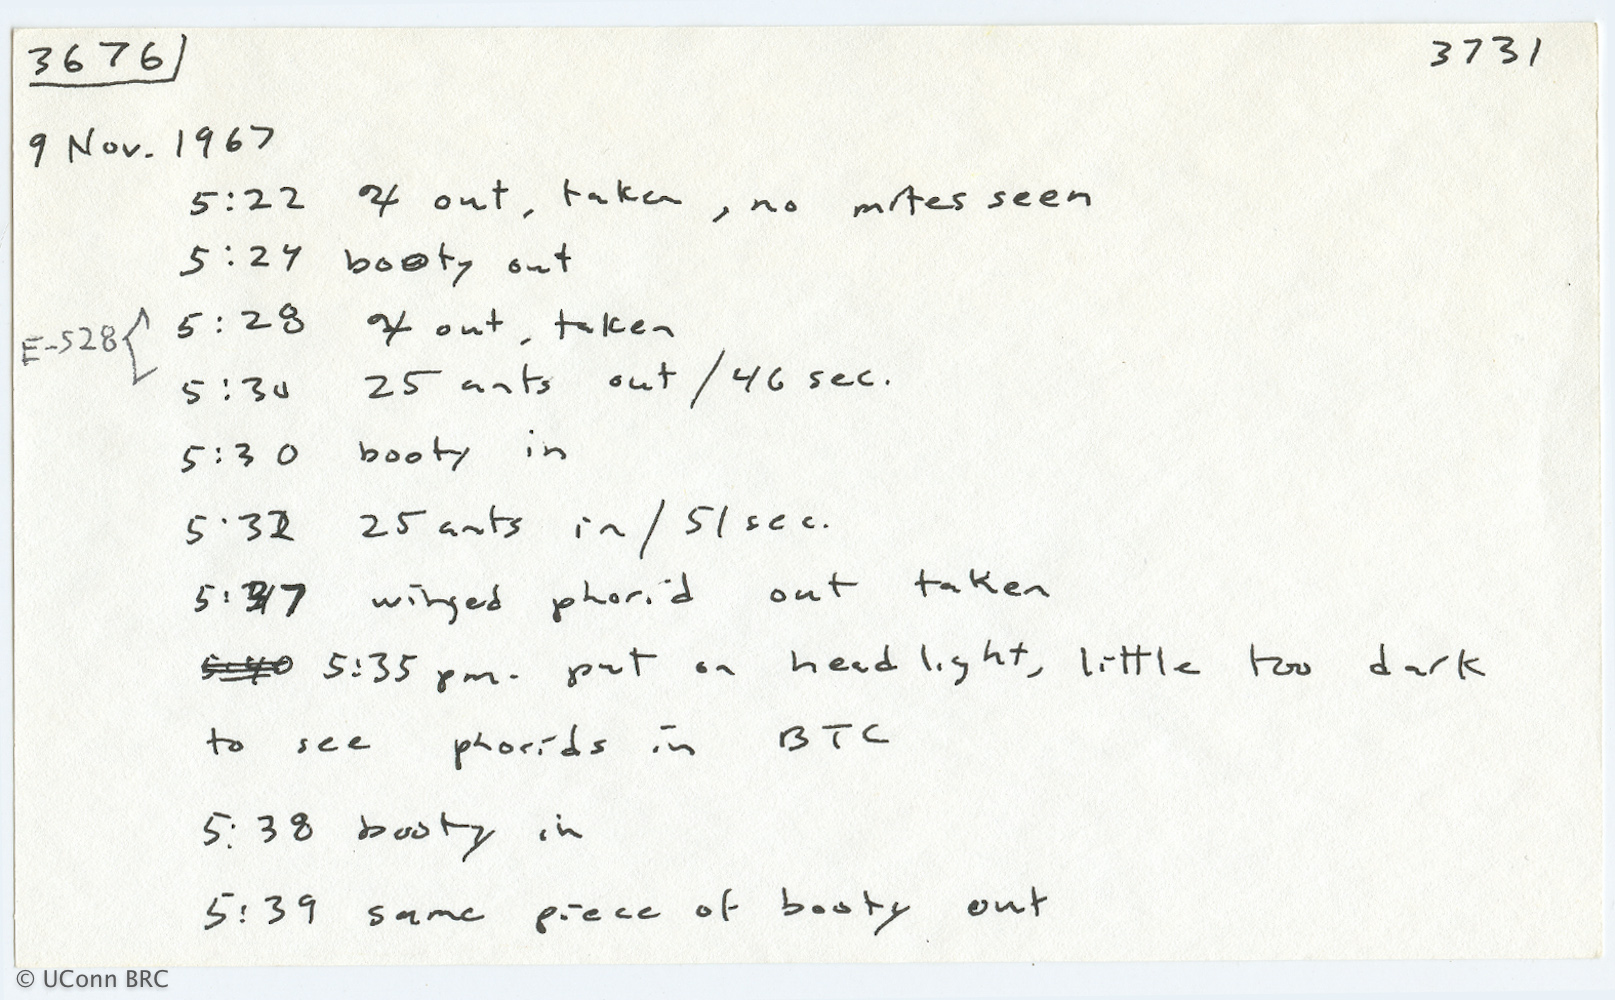 3676 3731
9 Nov. 1967
5:22 ♃ out, taken, no mites seen
5:24 booty out
E-528 { 5:28 ♃ out, taken
5:30 25 ants out / 46 sec.
5:30 booty in
5:32 25 ants in / 51 sec.
winged phorid out taken
5:35 pm. put on head light, little too dark
to see phorids in BTC
5:38 booty in
5:39 same piece of booty out
© UConn BRC